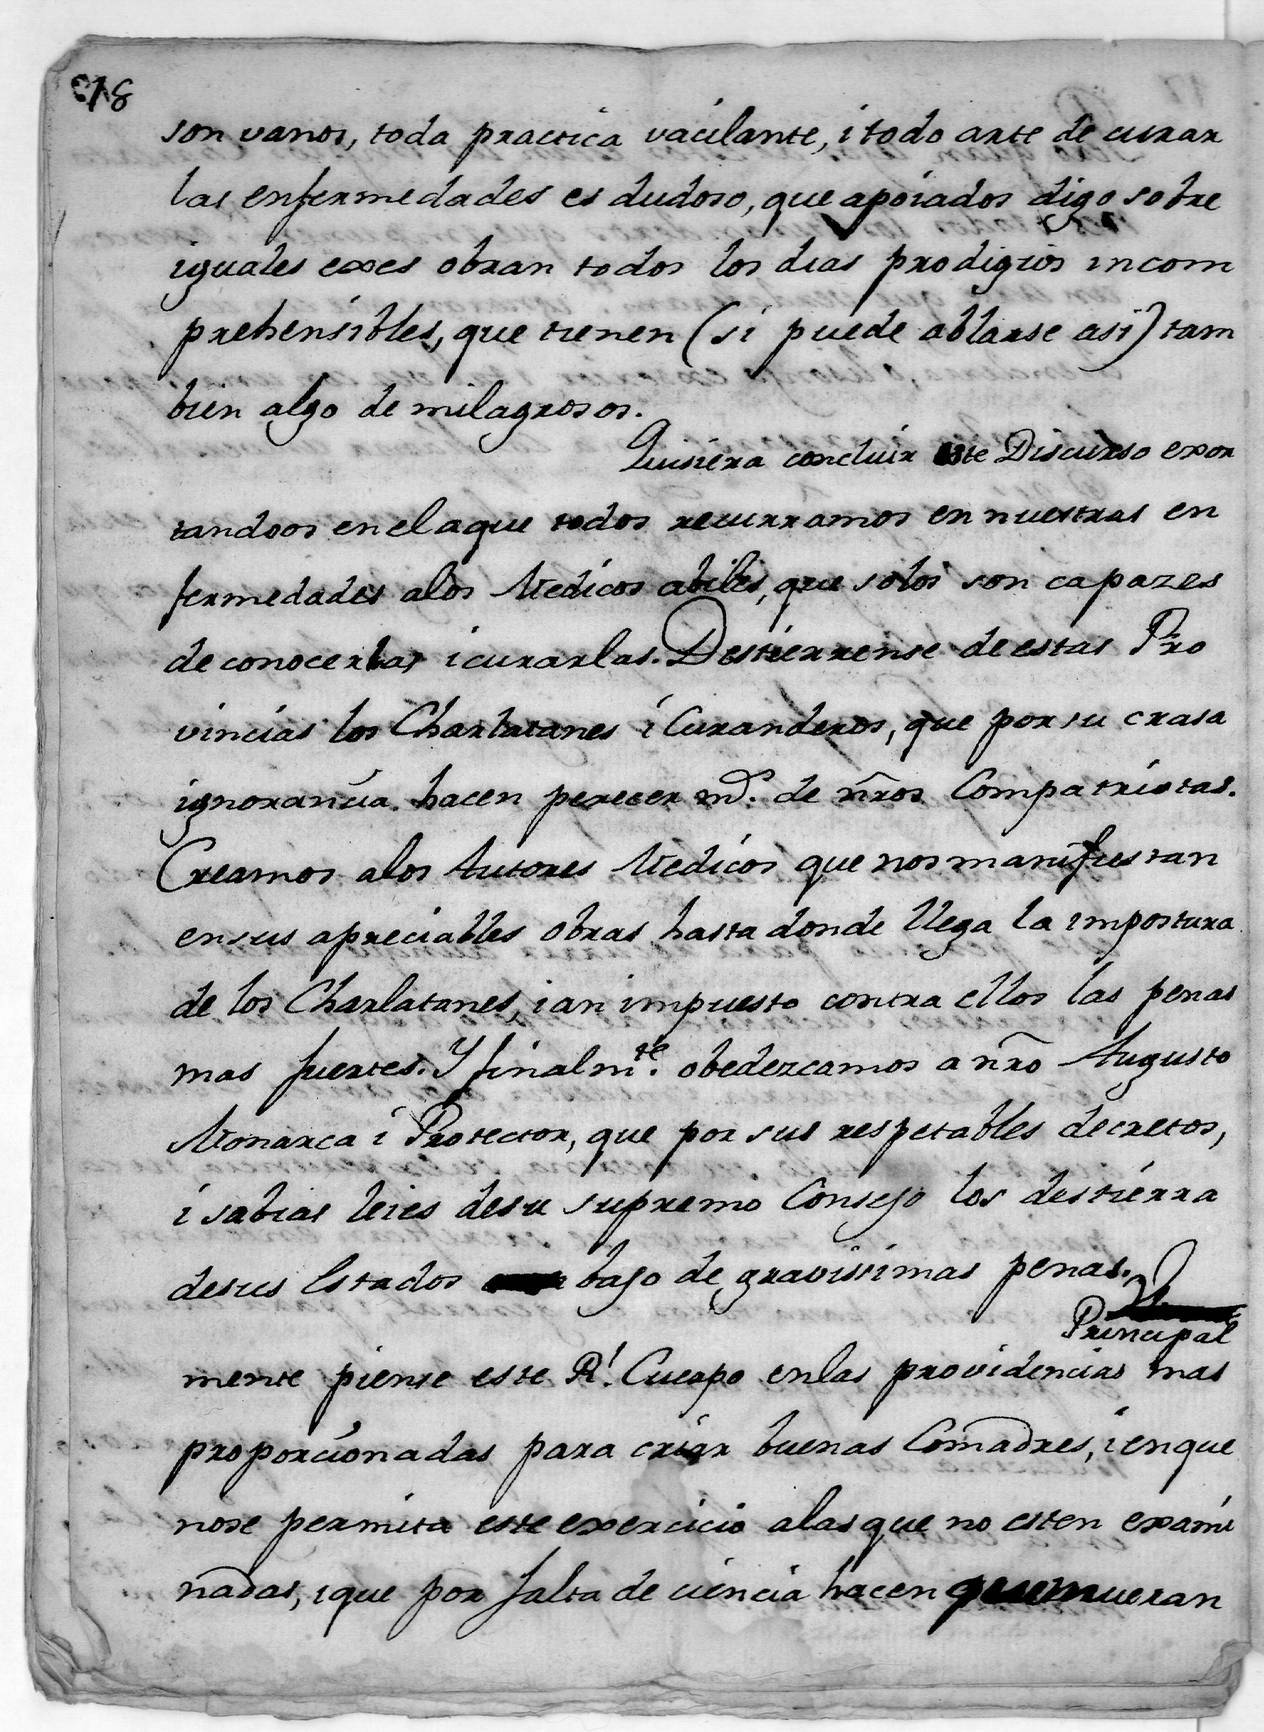 18
son vanos, toda practica vacilante, i todo arte de curar
las enfermedades es dudoso, que apoiados digo sobre
iguales exes obran todos los dias prodigios incom
prehensibles, que tienen (si puede ablarse asi) tam
bien algo de milagrosos.
Quisiera concluir este Discurso exor
tandoos en el a que todos recurramos en nuestras en
fermedades a los Medicos abiles, que solos son capazes
de conocerlas i curarlas. Destierrense de estas Pro
vincias los Charlatanes i Curanderos, que por su crasa
ignorancia hacen perecer ms. de ñros Compatriotas.
Creamos a los Autores Medicos que nos manifiestan
en sus apreciables obras hasta donde llega la impostura
de los Charlatanes, i an impuesto contra ellos las penas
mas fuertes. Y finalmte. obedezcamos a ñro Augusto
Monarca i Protector, que por sus respetables decretos,
i sabias leies de su supremo Consejo los destierra
de sus Estados bajo de gravissimas penas.
Principal
mente piense este Rl. Cuerpo en las providencias mas
proporcionadas para criar buenas Comadres, i en que
no se permita este exercicio a las que no esten exami
nadas, i que por falta de ciencia hacen que mueran